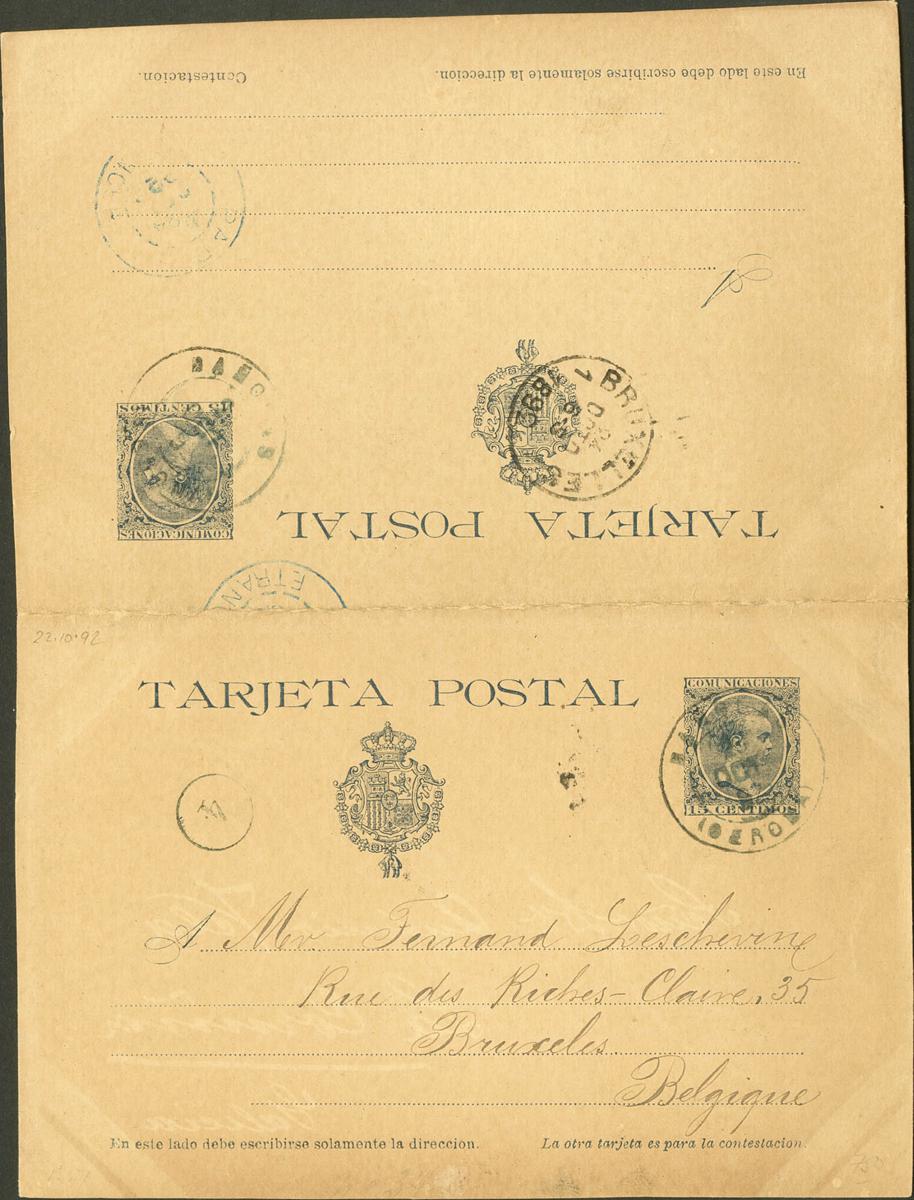 En este lado debe escribirse solamente la direccion. Contestacion.
A
BRUXELLES
1892
OCT
TARJETA POSTAL
15 CENTIMOS
COMUNICACIONES
ETRAN
22.10.92
TARJETA POSTAL
COMUNICACIONES
15 CENTIMOS
OCT
A Mr. Fernand Leschevin
Rue des Riches-Claire, 35
Bruxeles
Belgique
En este lado debe escribirse solamente la direccion. La otra tarjeta es para la contestacion.